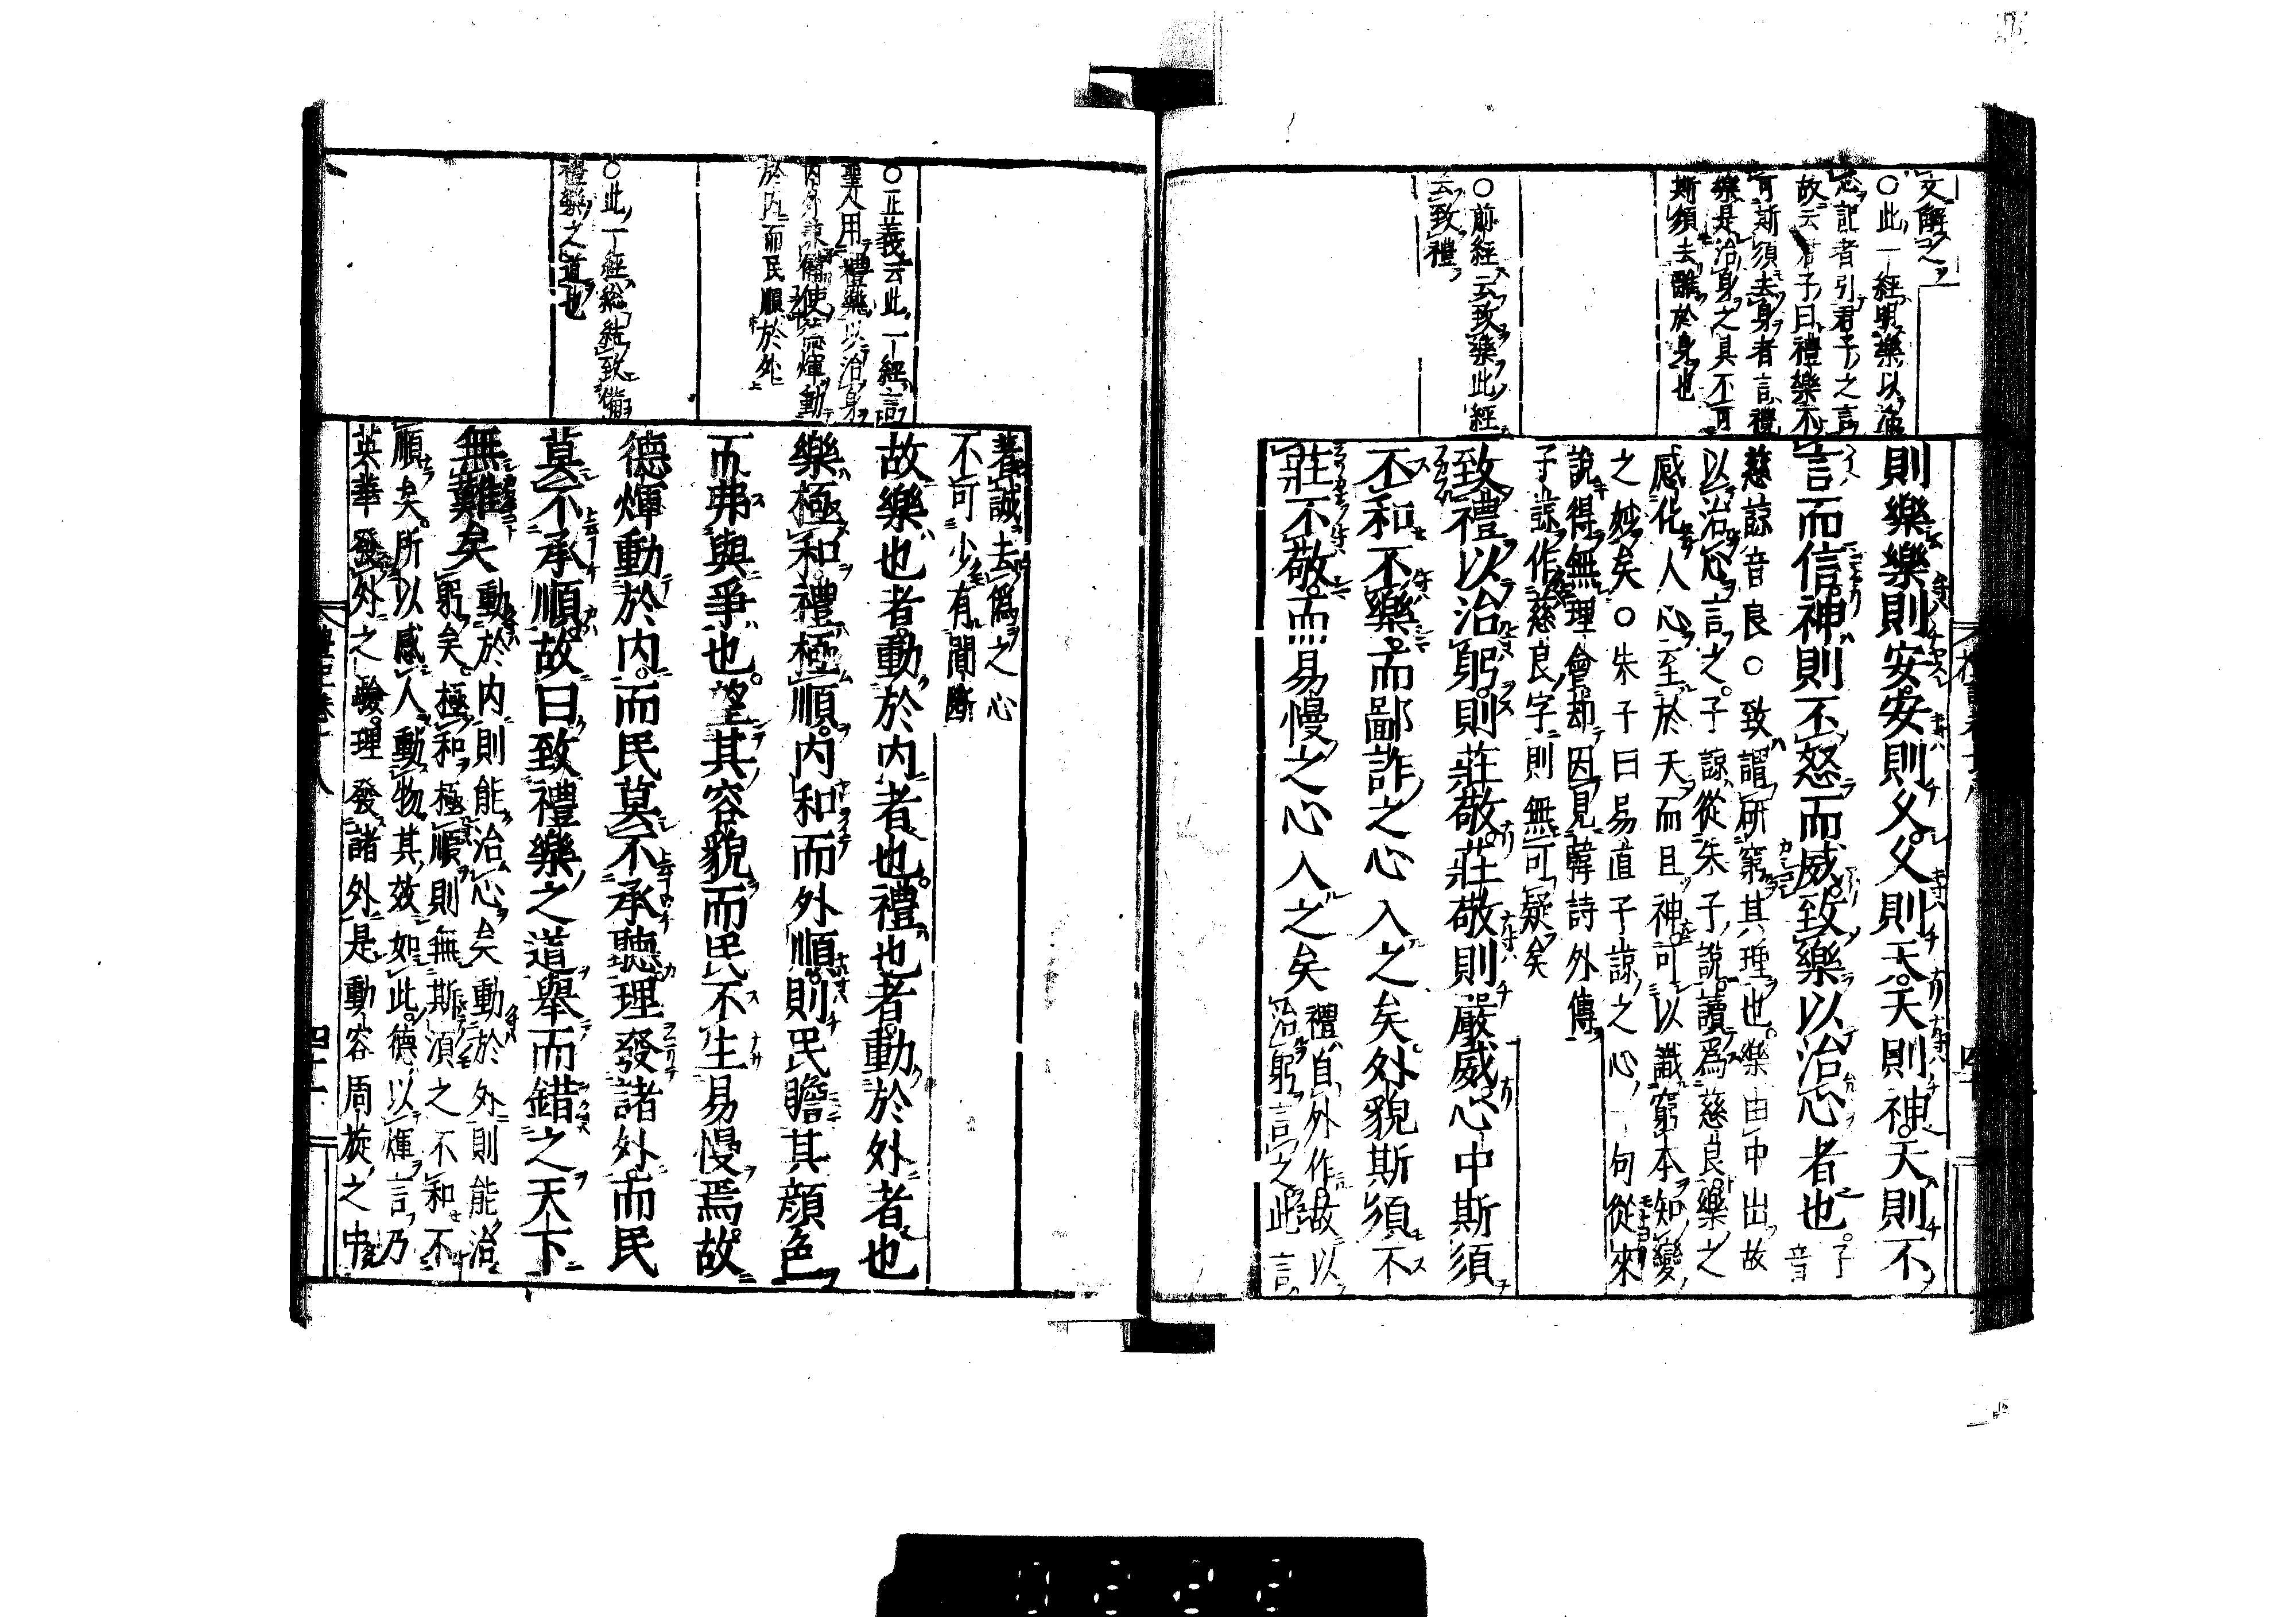 文解之
○此一經明樂以治
心記者引君子之言
故云君子曰禮樂不
可斯須去身者言禮
樂是治身之具不可
斯須去離於身也
○前經云致樂此經
云致禮
則樂樂則安安則久久則天天則神天則不
言而信神則不怒而威致樂以治心者也子音
慈諒音良○致謂研窮其理也樂由中出故
以治心言之子諒從朱子說讀爲慈良樂之
感化人心至於天而且神可以識窮本知變
之妙矣○朱子曰易直子諒之心一句從來
說得無理會却因見韓詩外傳
子諒作慈良字則無可疑矣
致禮以治躬則莊敬莊敬則嚴威心中斯須
不和不樂而鄙詐之心入之矣外貌斯須不
莊不敬而易慢之心入之矣禮自外作故以治躬言之此言
○正義云此一經言
聖人用禮樂以治身
内外兼備使德煇動
於内而民順於外
○此一經總結致備
禮樂之道也
著誠去僞之心
不可少有間斷
故樂也者動於内者也禮也者動於外者也
樂極和禮極順内和而外順則民瞻其顔色
而弗與爭也望其容貌而民不生易慢焉故
德煇動於内而民莫不承聽理發諸外而民
莫不承順故曰致禮樂之道舉而錯之天下
無難矣動於内則能治心矣動於外則能治躬矣極和極順則無斯須之不和不
順矣所以感人動物其效如此德以煇言乃
英華發外之驗理發諸外是動容周旋之中
四十一